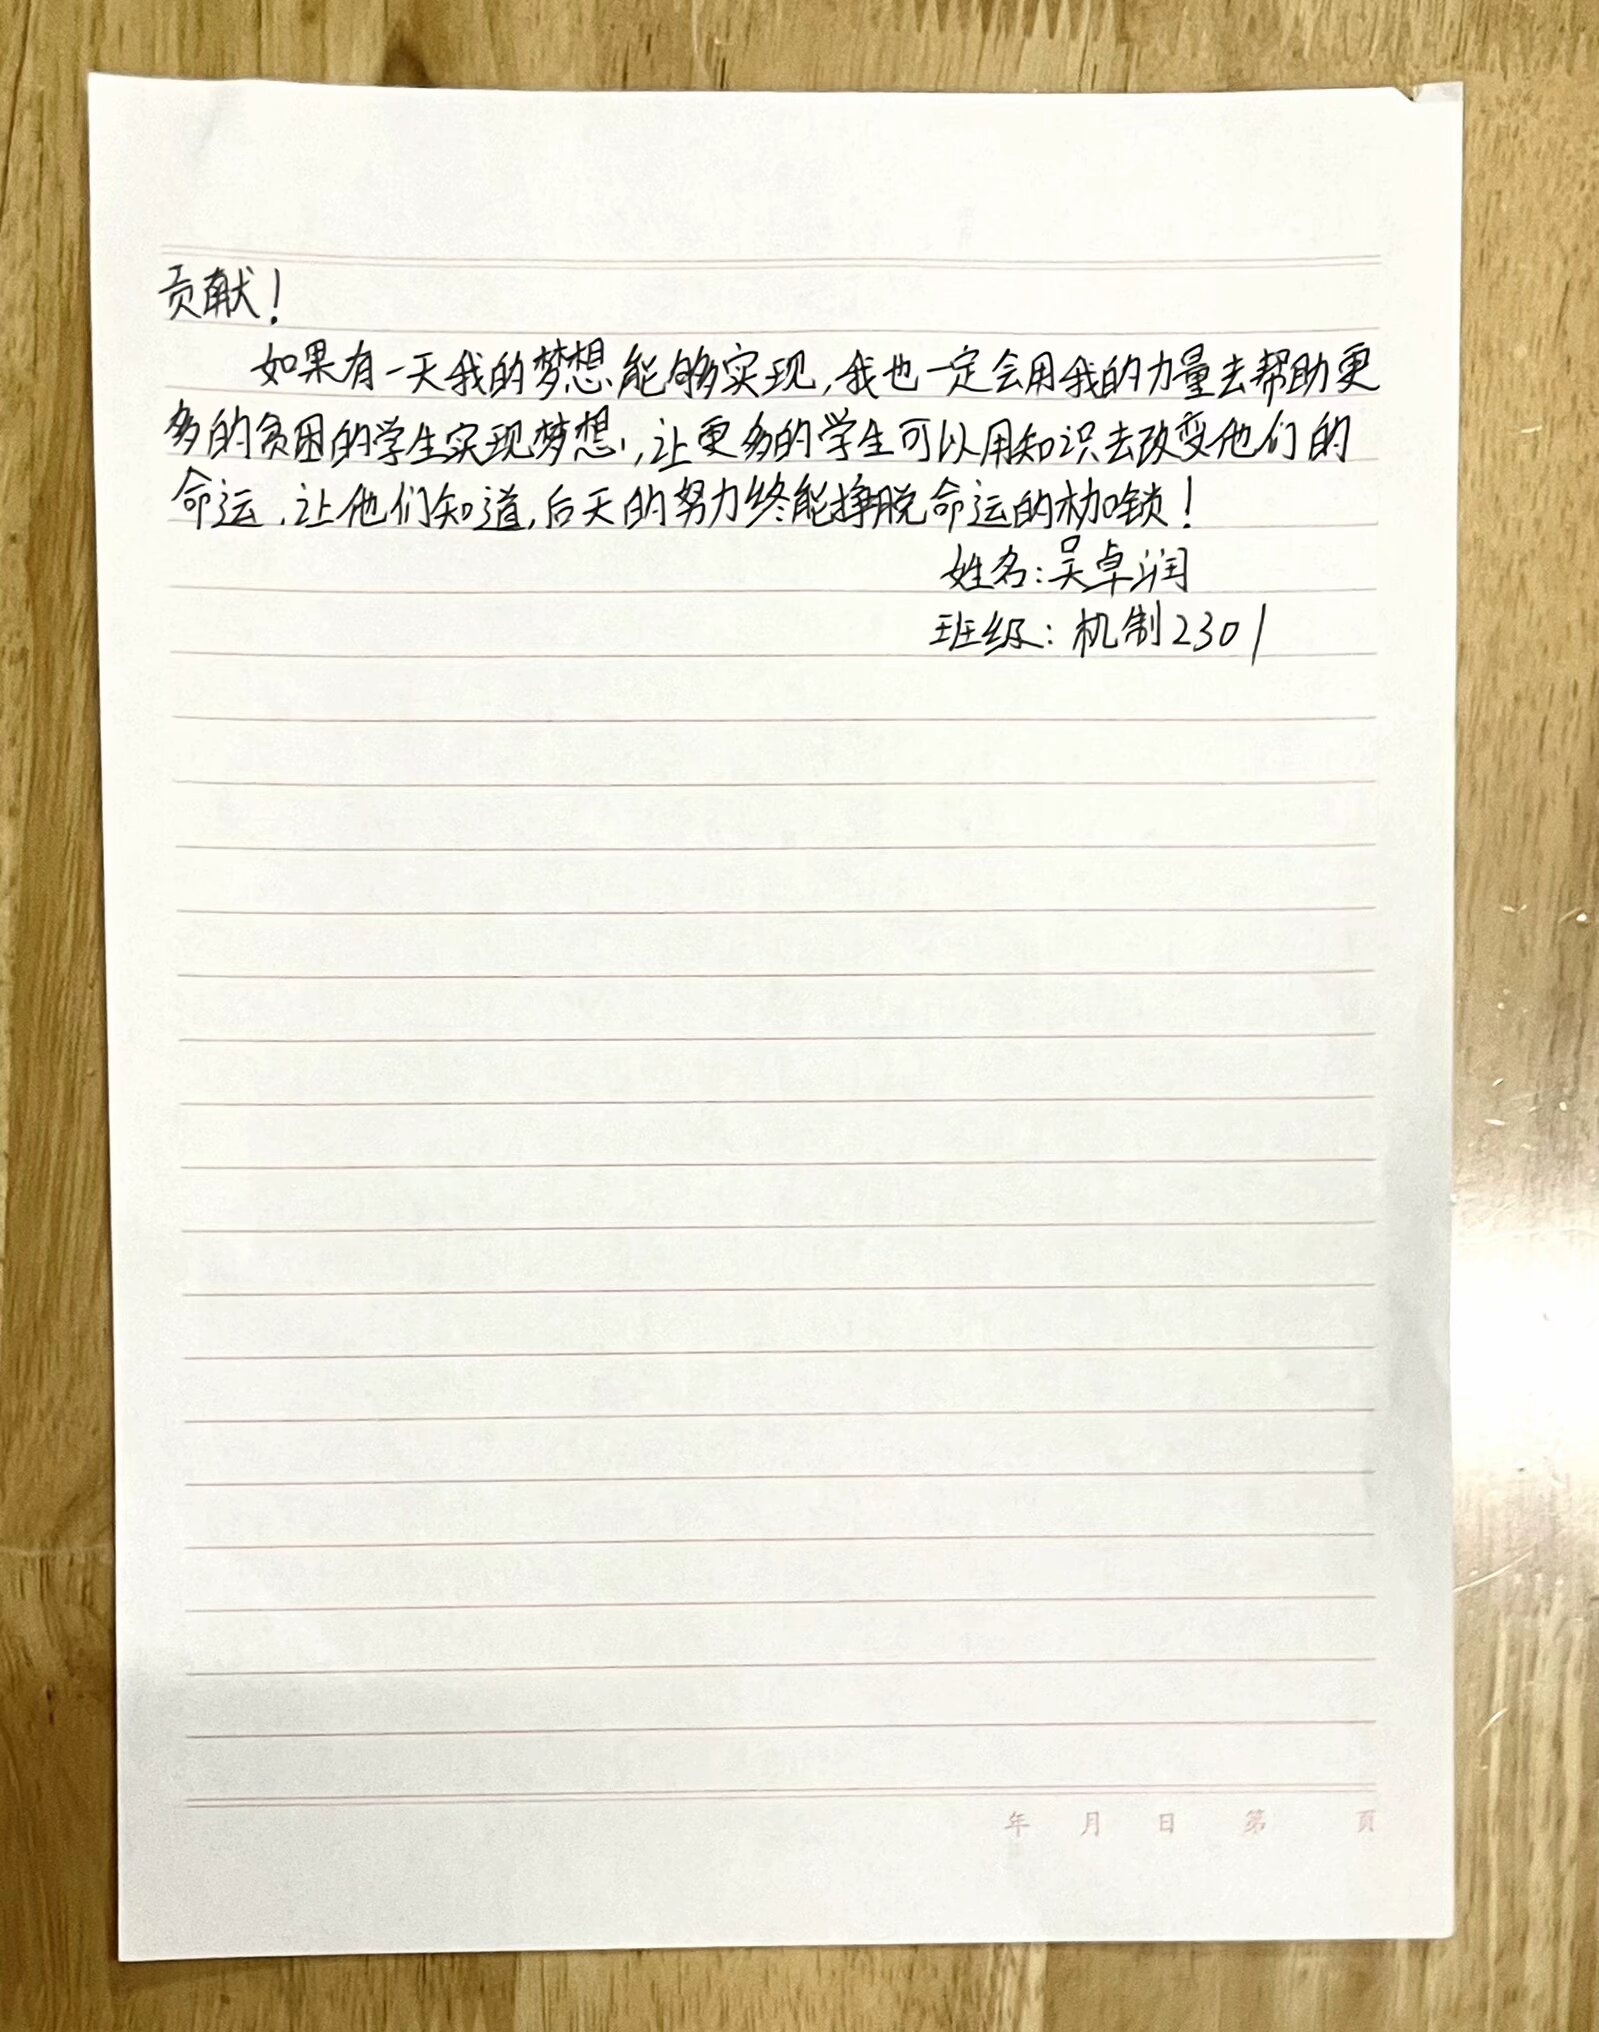 贡献！
如果有一天我的梦想能够实现，我也一定会用我的力量去帮助更
多的贫困的学生实现梦想，让更多的学生可以用知识去改变他们的
命运，让他们知道，后天的努力终能挣脱命运的枷锁！
姓名：吴卓润
班级：机制2301
年 月 日 第 頁